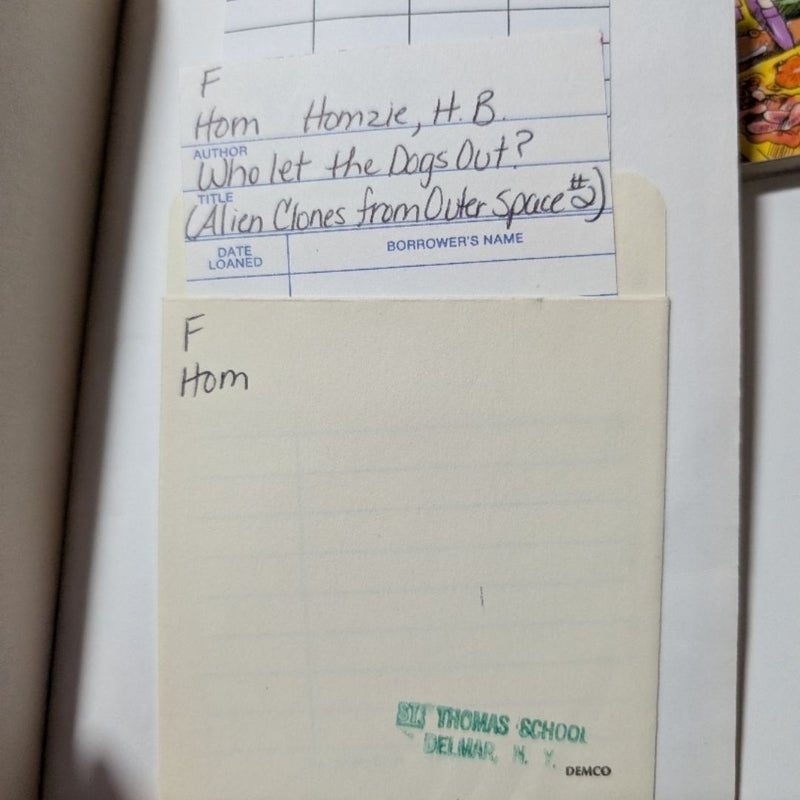 F
Hom Homzie, H. B.
AUTHOR
Who let the Dogs Out?
TITLE
(Alien Clones from Outer Space #2)
DATE LOANED
BORROWER'S NAME
F
Hom
ST. THOMAS SCHOOL
DELMAR, N. Y.
DEMCO